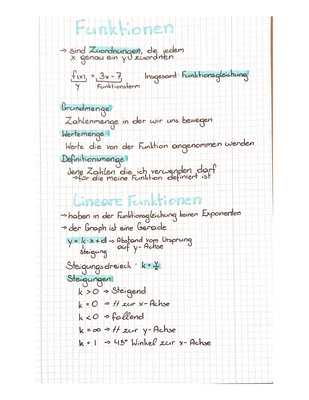 Funktionen
→ sind Zuordnungen, die jedem
x genau ein y zuordnen
f(x) = 3x-7 Insgesamt: Funktionsgleichung
y Funktionsterm
Grundmenge
Zahlenmenge in der wir uns bewegen
Wertemenge
Werte die von der Funktion angenommen werden
Definitionmenge
Jene Zahlen die ich verwenden darf
→ für die meine Funktion definiert ist
Lineare Funktionen
→ haben in der Funktionsgleichung keinen Exponenten
→ der Graph ist eine Gerade
y = k · x + d → Abstand vom Ursprung
steigung auf y-Achse
Steigungsdreieck: k = y/x
Steigungen:
k > 0 → Steigend
k = 0 → // zur x-Achse
k < 0 → fallend
k = ∞ → // zur y-Achse
k = 1 → 45° Winkel zur x-Achse